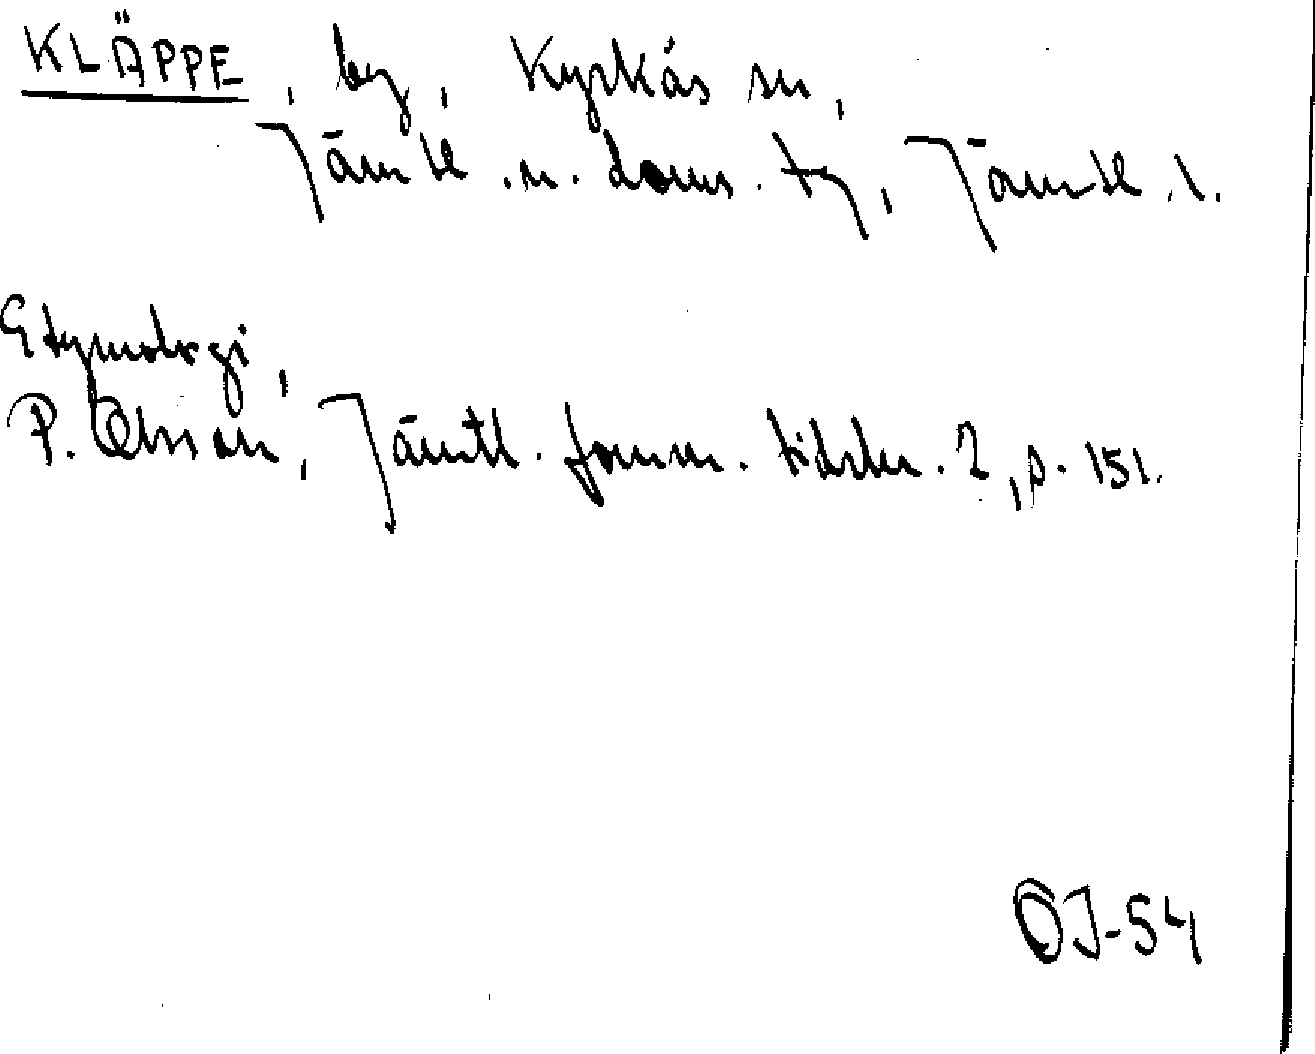 KLÄPPE, by, Kyrkås sn,
Jämtl. n. doms. tj, Jämtl. l.
Etymologi,
P. Olsson, Jämtl. fornm. tidskr. 2, s. 151.
OJ-54